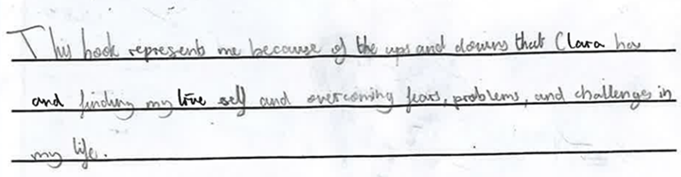 This book represents me because of the ups and downs that Clara has
and finding my true self and overcoming fears, problems, and challenges in
my life.